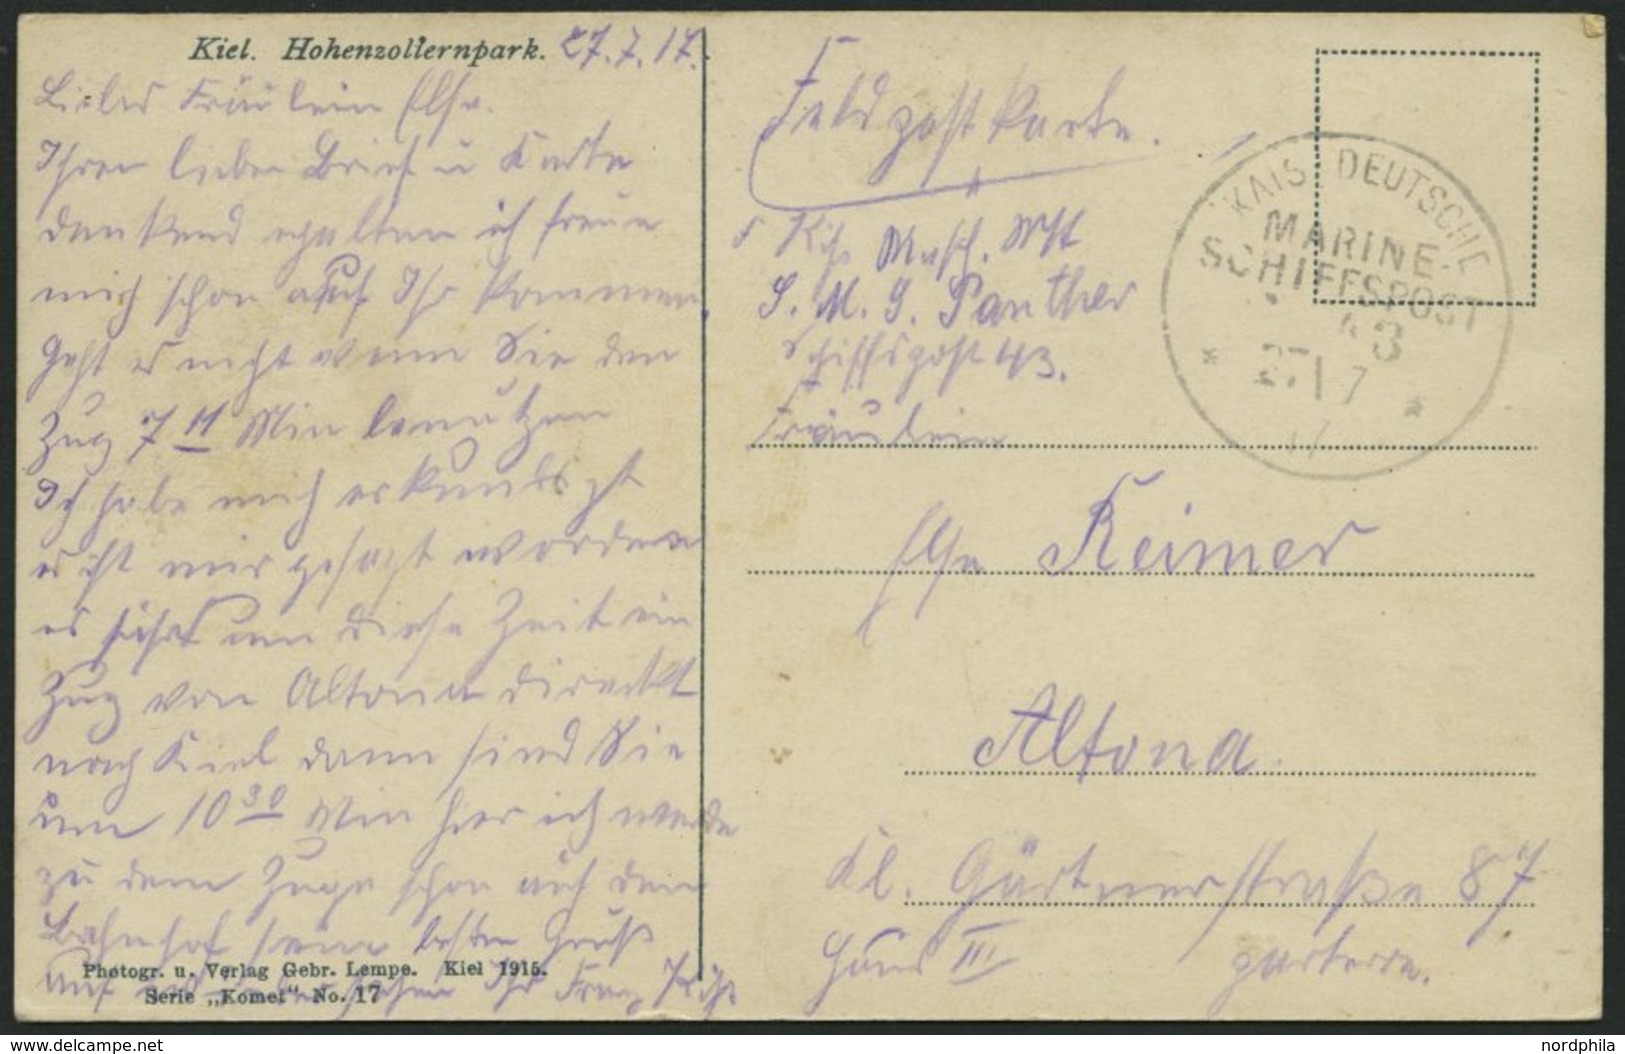 Kiel. Hohenzollernpark. 27.7.17.
Liebes Fräulein Else.
Ihren lieben Brief u Karte
dankend erhalten ich freue
mich schon auf Ihr kommen.
Geht es nicht wenn Sie den
Zug 7 11 Min benutzen
Ich habe mich erkundigt
es ist mir gesagt worden
es fährt um diese Zeit ein
Zug von Altona direckt
nach Kiel dann sind Sie
um 10 30 Min hier ich werde
zu dem Zuge schon auf dem
Bahnhof sein besten Gruß
auf Ihr Franz
Photogr. u. Verlag Gebr. Lempe. Kiel 1915.
Serie „Komet" No. 17
Feldpostkarte.
Masch.
S. M. S. Panther
Schiffspost 43.
Fräulein
Else Reimer
Altona
Kl. Gärtnerstraße 87
Haus III parterre.
KAIS DEUTSCHE
MARINE-
SCHIFFSPOST
43
27 7
17
nordphila
www.delcampe.net